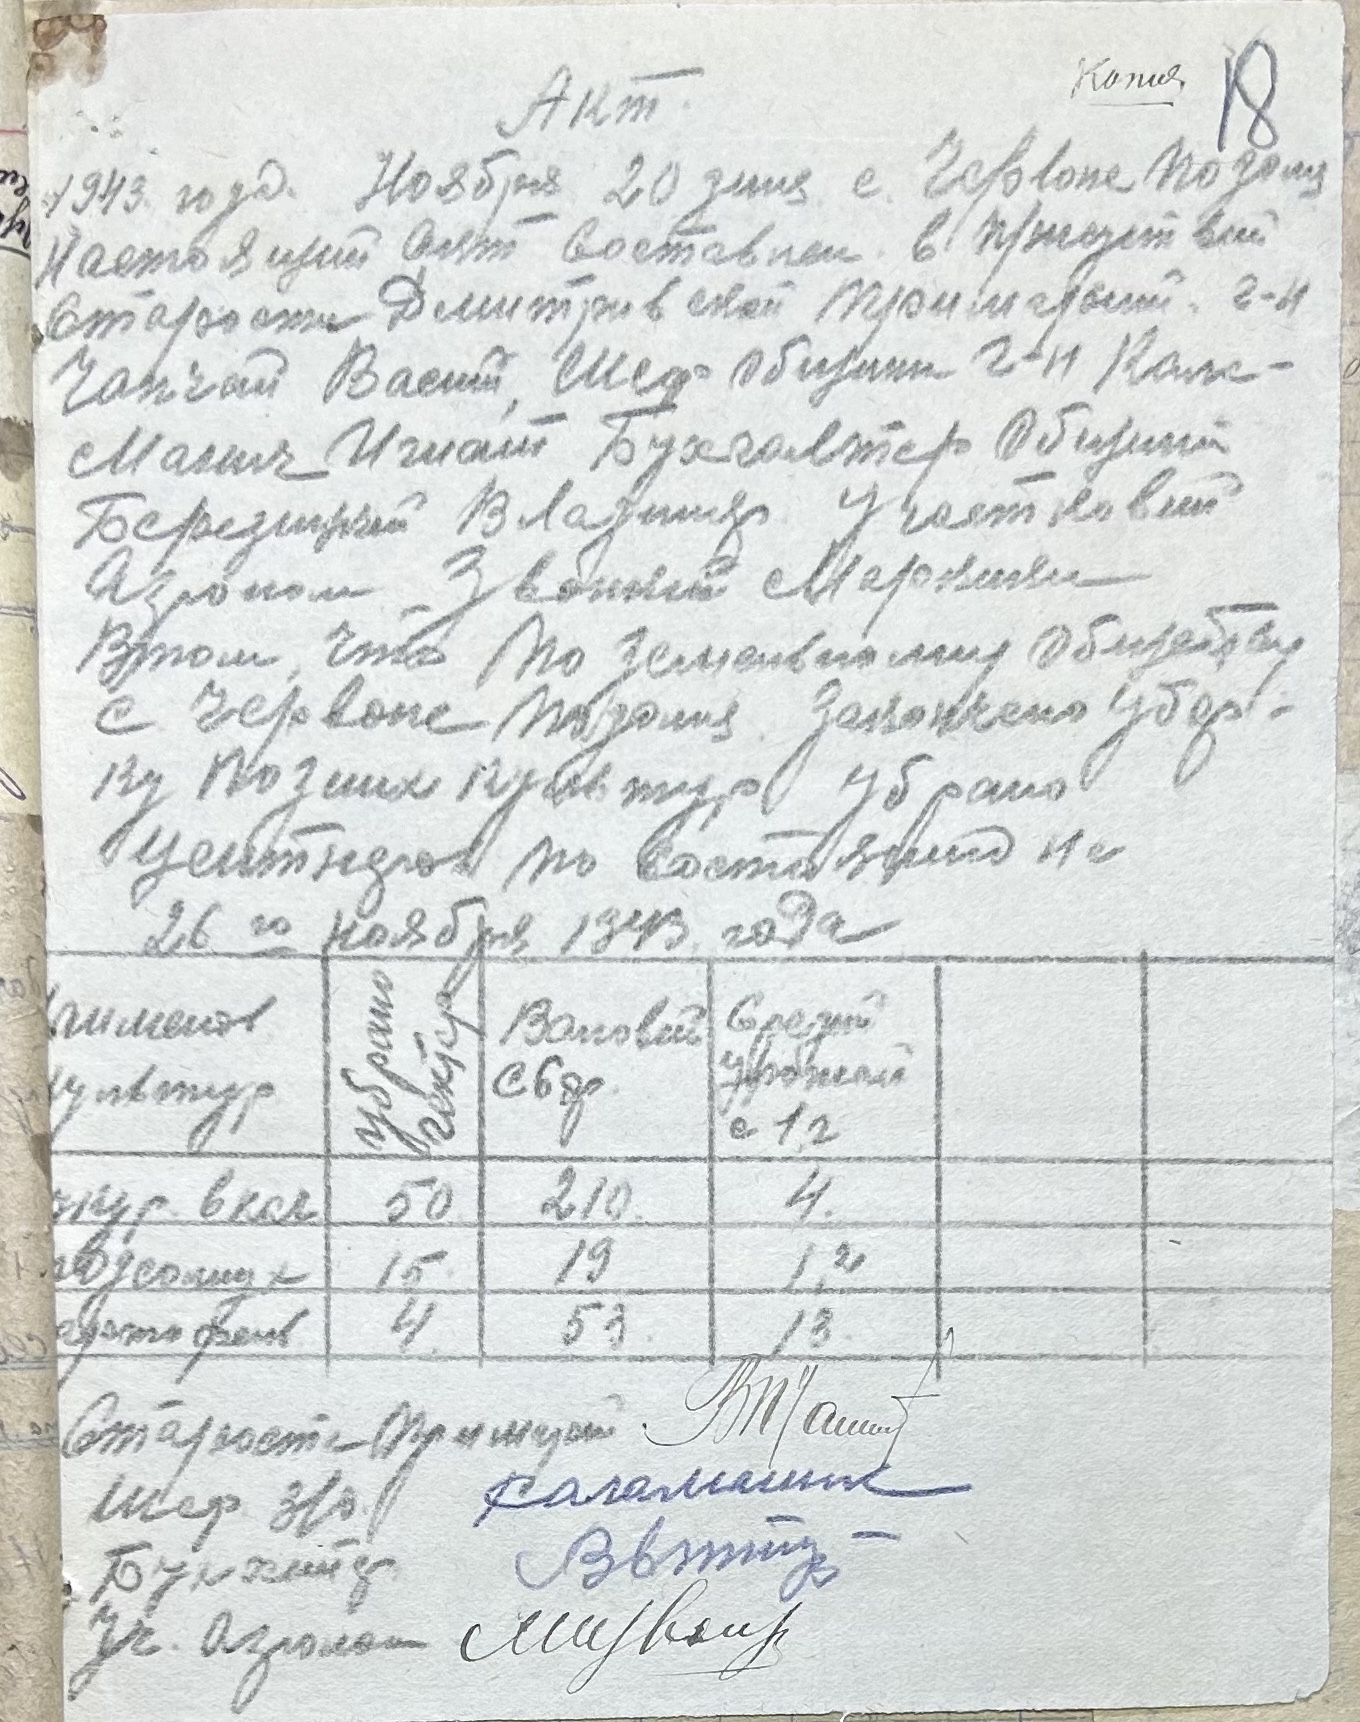 Копия
18
Акт
1943. года. Ноября 20 дня с. Червоне Подоля
Настоящий Акт составлен. в присуствий
Старости Дмитривской Примарий. г-н
Чапчай Васий, Шеф общини г-н Кала-
Маник Игнат Бухгалтер Общини
Березицкий Владимир Участковий
Агроном Звонкий
Втом, что по земельному обществу
с Червоне Подоля. Закончено убор-
ку поздних культур убрано
центнеров по состоянию на
26 го ноября 1943 года
именов культур
убрано гектар
Валовий Сбор.
Средний урожай с 1 г
кур. в кач 50 210. 4.
подсолнух 15. 19 1,2
артофель 4. 53. 13.
Староста Примарий
Шеф з/о. Каламаник
Бухгалтер
Уч. Агроном